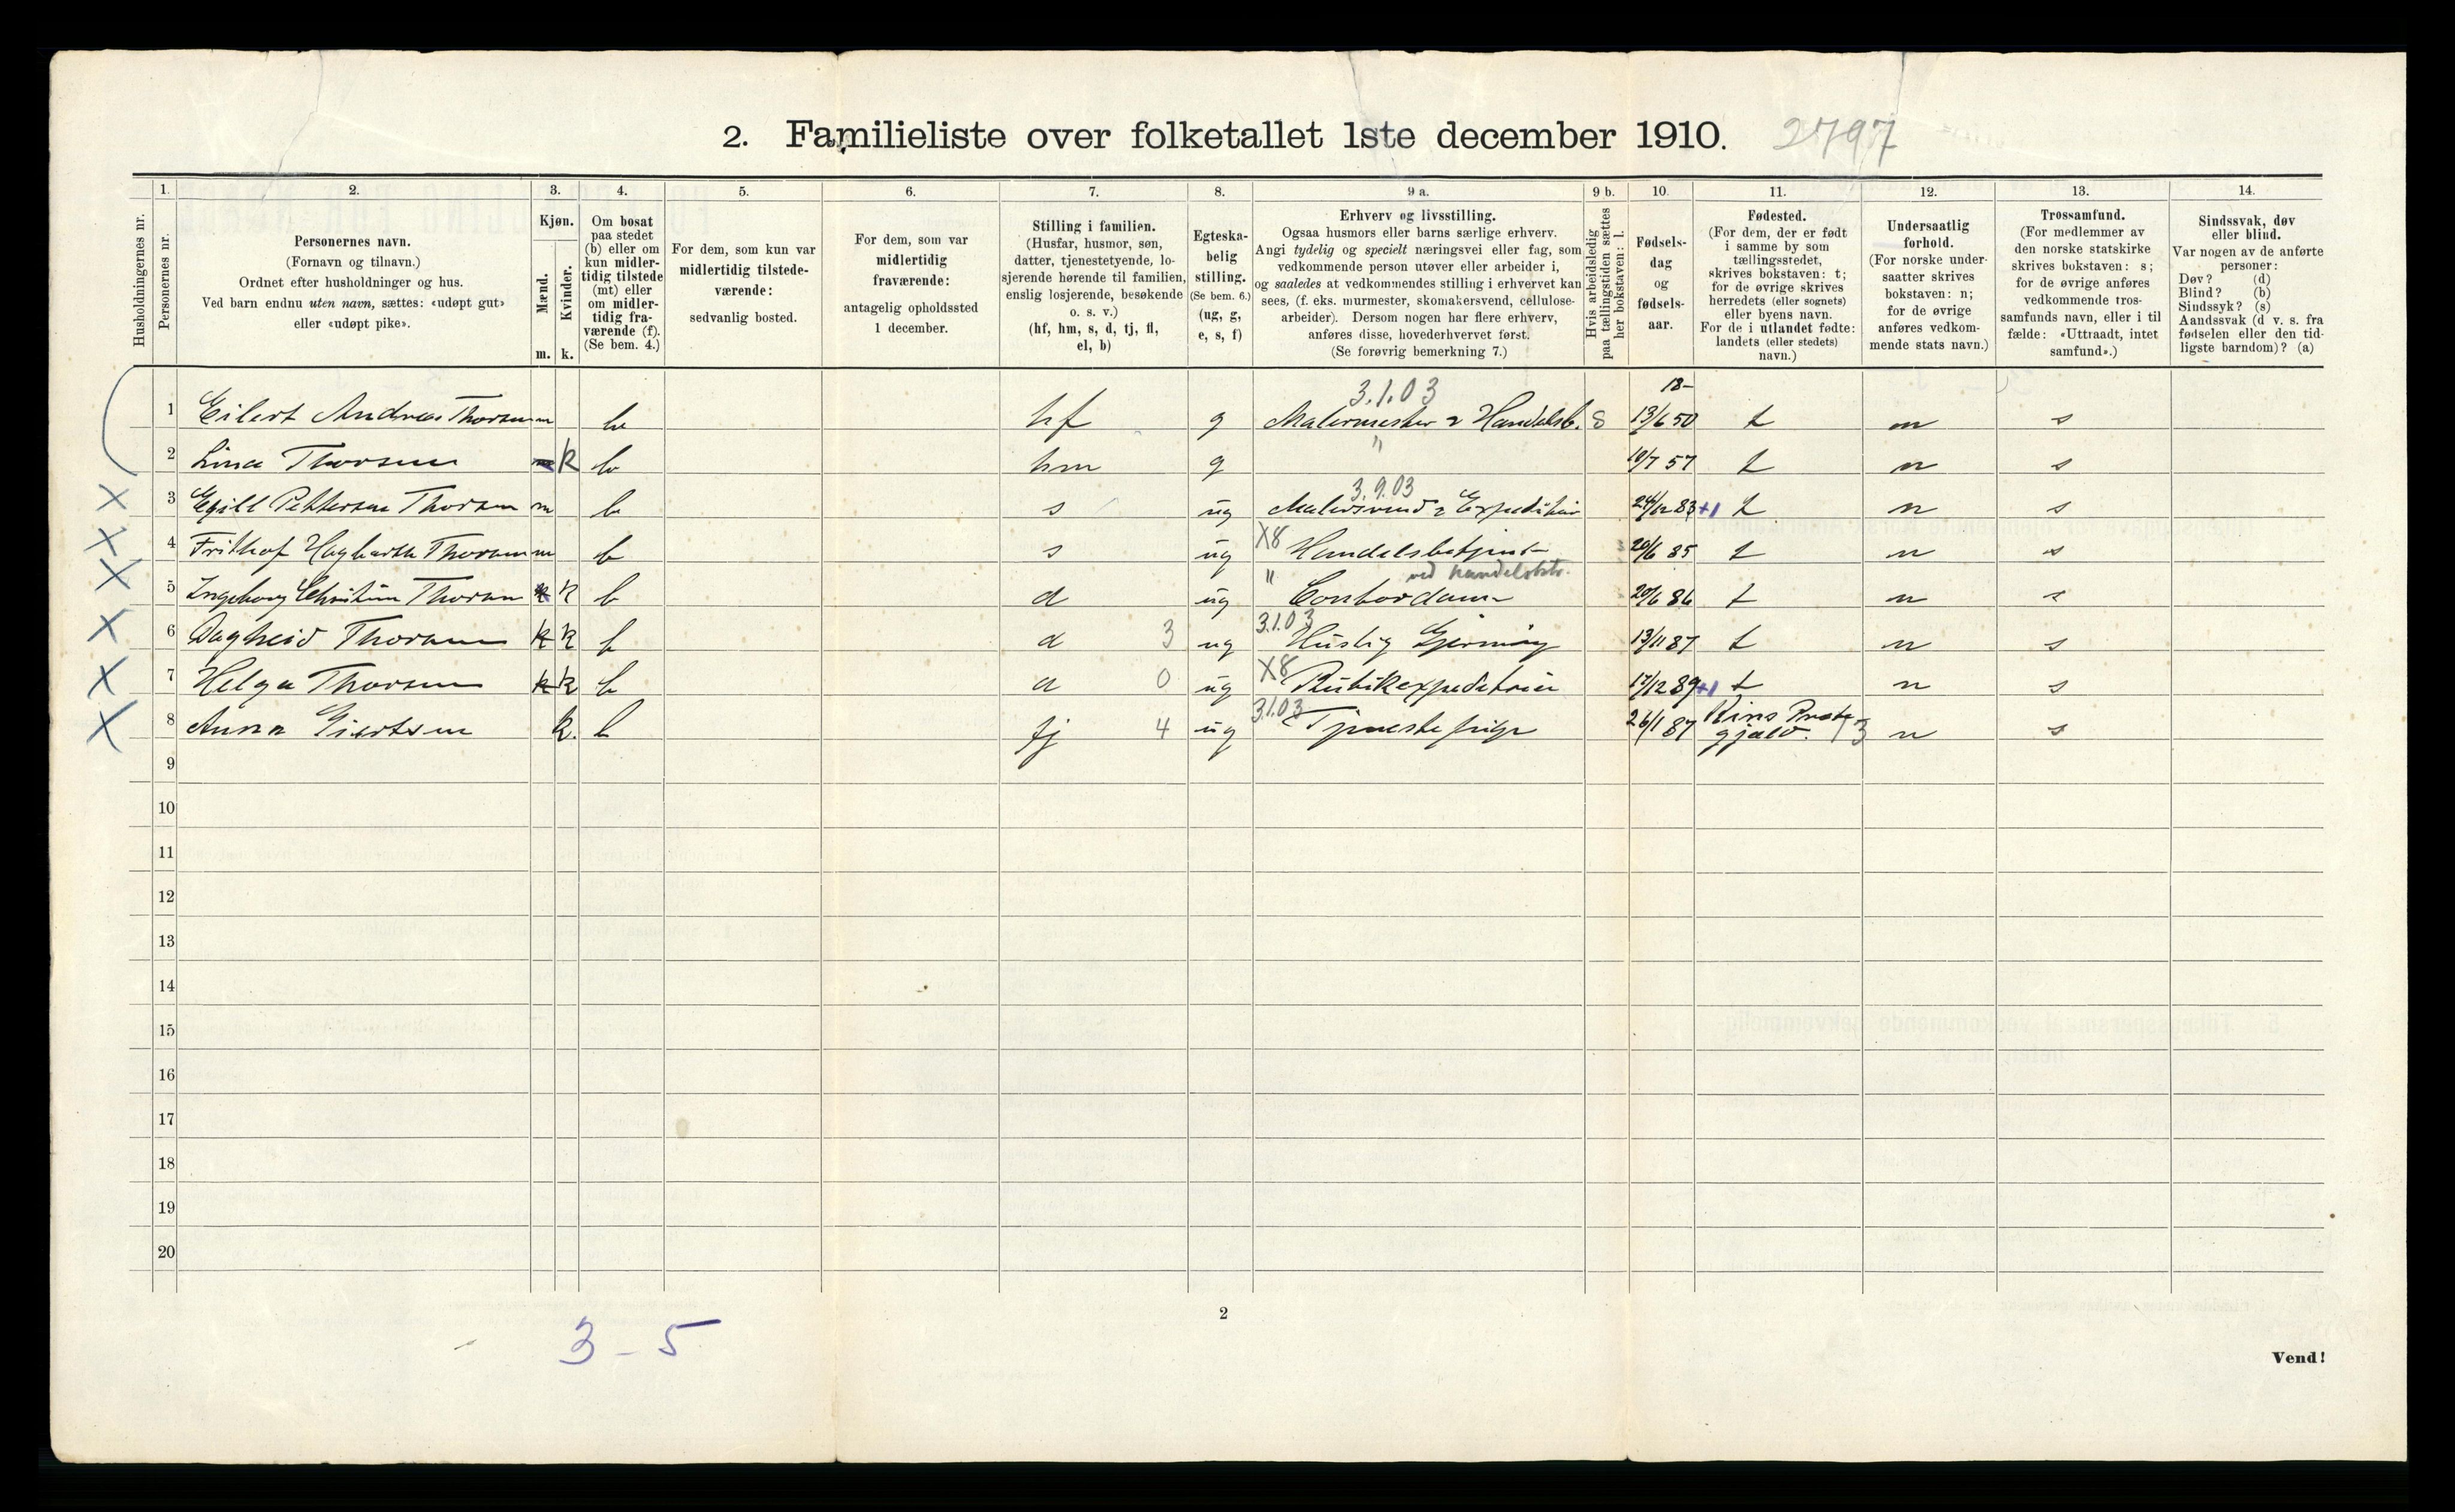 2. Familieliste over folketallet 1ste december 1910. 2797
1. 2. 3. 4. 5. 6. 7. 8. 9 a. 9 b. 10. 11. 12. 13. 14.
Husholdningernes nr.
Personernes nr.
Personernes navn.
(Fornavn og tilnavn.)
Ordnet efter husholdninger og hus.
Ved barn endnu uten navn, sættes: «udøpt gut»
eller «udøpt pike».
Kjøn.
Mænd.
Kvinder.
m. k.
Om bosat
paa stedet
(b) eller om
kun midler-
tidig tilstede
(mt) eller
om midler-
tidig fra-
værende (f).
(Se bem. 4.)
For dem, som kun var
midlertidig tilstede-
værende:
sedvanlig bosted.
For dem, som var
midlertidig
fraværende:
antagelig opholdssted
1 december.
Stilling i familien.
(Husfar, husmor, søn,
datter, tjenestetyende, lo-
sjerende hørende til familien,
enslig losjerende, besøkende
o. s. v.)
(hf, hm, s, d, tj, fl,
el, b)
Egteska-
belig
stilling.
(Se bem. 6.)
(ug, g,
e, s, f)
Erhverv og livsstilling.
Ogsaa husmors eller barns særlige erhverv.
Angi tydelig og specielt næringsvei eller fag, som
vedkommende person utøver eller arbeider i,
og saaledes at vedkommendes stilling i erhvervet kan
sees, (f. eks. murmester, skomakersvend, cellulose-
arbeider). Dersom nogen har flere erhverv,
anføres disse, hovederhvervet først.
(Se forøvrig bemerkning 7.)
Hvis arbeidsledig
paa tællingstiden sættes
her bokstaven: l.
Fødsels-
dag
og
fødsels-
aar.
Fødested.
(For dem, der er født
i samme by som
tællingsstedet,
skrives bokstaven: t;
for de øvrige skrives
herredets (eller sognets)
eller byens navn.
For de i utlandet fødte:
landets (eller stedets)
navn.)
Undersaatlig
forhold.
(For norske under-
saatter skrives
bokstaven: n;
for de øvrige
anføres vedkom-
mende stats navn.)
Trossamfund.
(For medlemmer av
den norske statskirke
skrives bokstaven: s;
for de øvrige anføres
vedkommende tros-
samfunds navn, eller i til
fælde: «Uttraadt, intet
samfund».)
Sindssvak, døv
eller blind.
Var nogen av de anførte
personer:
Døv? (d)
Blind? (b)
Sindssyk? (s)
Aandssvak (d v. s. fra
fødselen eller den tid-
ligste barndom)? (a)
3.1.03 18-
1 Eilert Andreas Thorsen m b hf g Malermester & Handelsb. 8 13/6 50 t n s
2 Lina Thorsen k b hm g " 10/7 57 t n s
3.9.03
X 3 Egill Petterson Thorsen m b s ug Malersvend & Expeditør 24/12 83 +1 t n s
X 4 Frithof Hagbarth Thorsen m b s ug X8 Handelsbetjent 20/6 85 t n s
" ved handelsbtr.
X 5 Ingeborg Christine Thorsen k b d ug Contordame 20/6 86 t n s
X 6 Dagheid Thorsen k k b d 3 ug 3.1.03 Huslig Gjerning 13/11 87 t n s
X 7 Helga Thorsen k k b d 0 ug X8 Butikexpeditrice 17/12 89 +1 t n s
X 8 Anna Giertsen k. b tj 4 ug 3.1.03 Tjenestepige 26/1 87 Kins Preste-
gjeld. 13 n s
9
10
11
12
13
14
15
16
17
18
19
20
2
3 - 5
Vend!